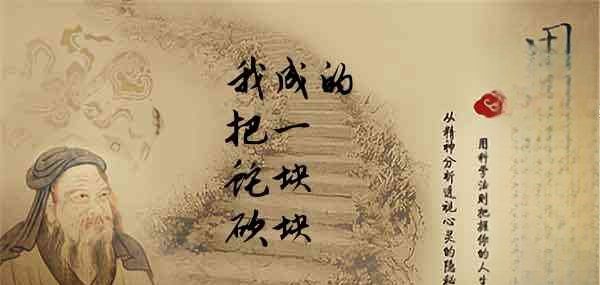 我把砂
成一块块
的
用
用科学法则把握你的人生
从精神分析透视心灵的隐秘